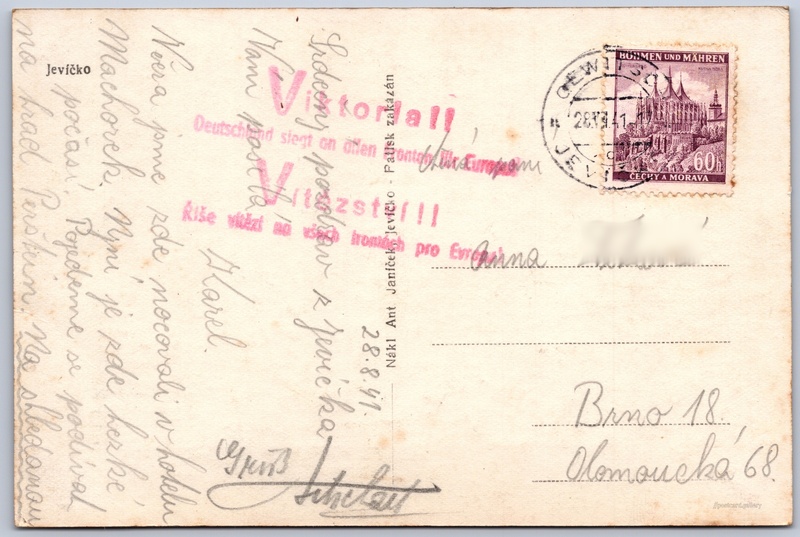 Jevíčko
Srdečný pozdrav z Jevíčka
Vám posílá
Karel.
28.8.41.
Včera jsme zde nocovali v hotelu
Machorek. Nyní je zde hezké
počasí. Pojedeme se podívat
na hrad Perštein Na shledanou
Gruß
Victoria!!
Deutschland siegt an allen Fronten für Europa
Vítězství!!
Říše vítězí na všech frontách pro Evropu!
Nákl Ant Janíček Jevíčko - Patisk zakázán
BÖHMEN UND MÄHREN
60h
ČECHY A MORAVA
GEWITSCH
JEVÍČKO
paní
Anna
Brno 18,
Olomoucká 68.